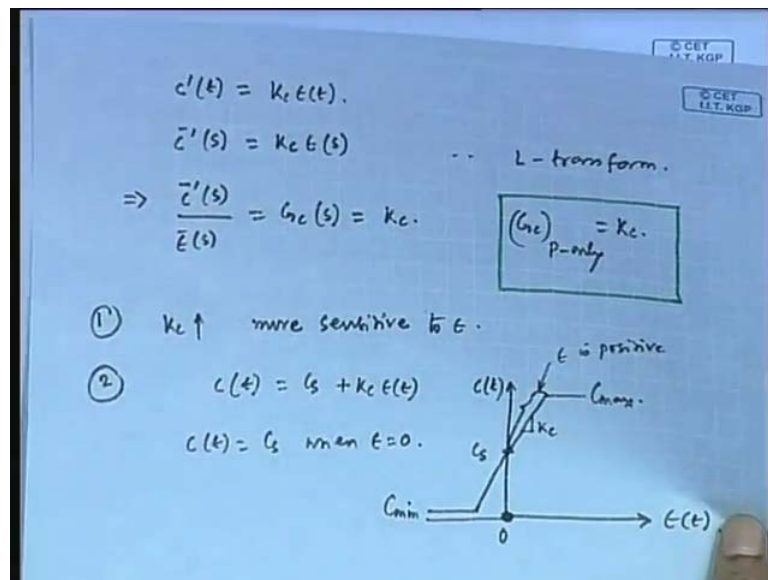 © CET
I.I.T. KGP
© CET
I.I.T. KGP
c'(t) = Kc ϵ(t).
c̄'(s) = Kc ϵ(s) .. L-transform.
⇒ c̄'(s) / ϵ̄(s) = Gc(s) = Kc.
(Gc)P-only = Kc.
① Kc ↑ more sensitive to ϵ.
② c(t) = Cs + Kc ϵ(t)
c(t) = Cs when ϵ=0.
ϵ is positive
c(t)
Cmax.
Kc
Cs
Cmin
0
ϵ(t).